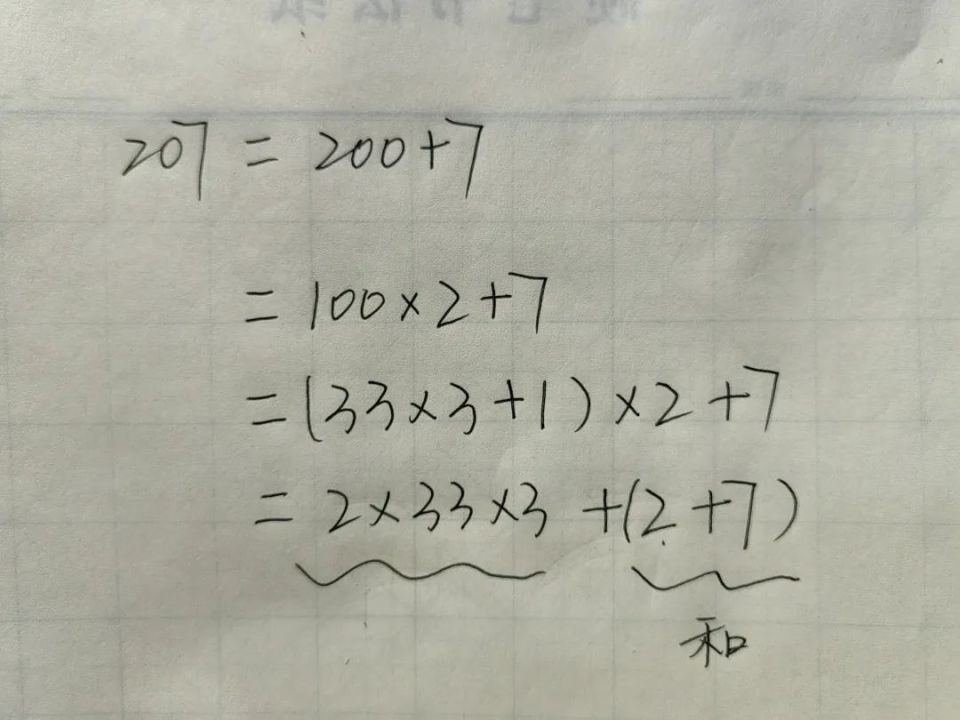 207 = 200+7
= 100×2+7
= (33×3+1)×2+7
= 2×33×3+(2+7)
和